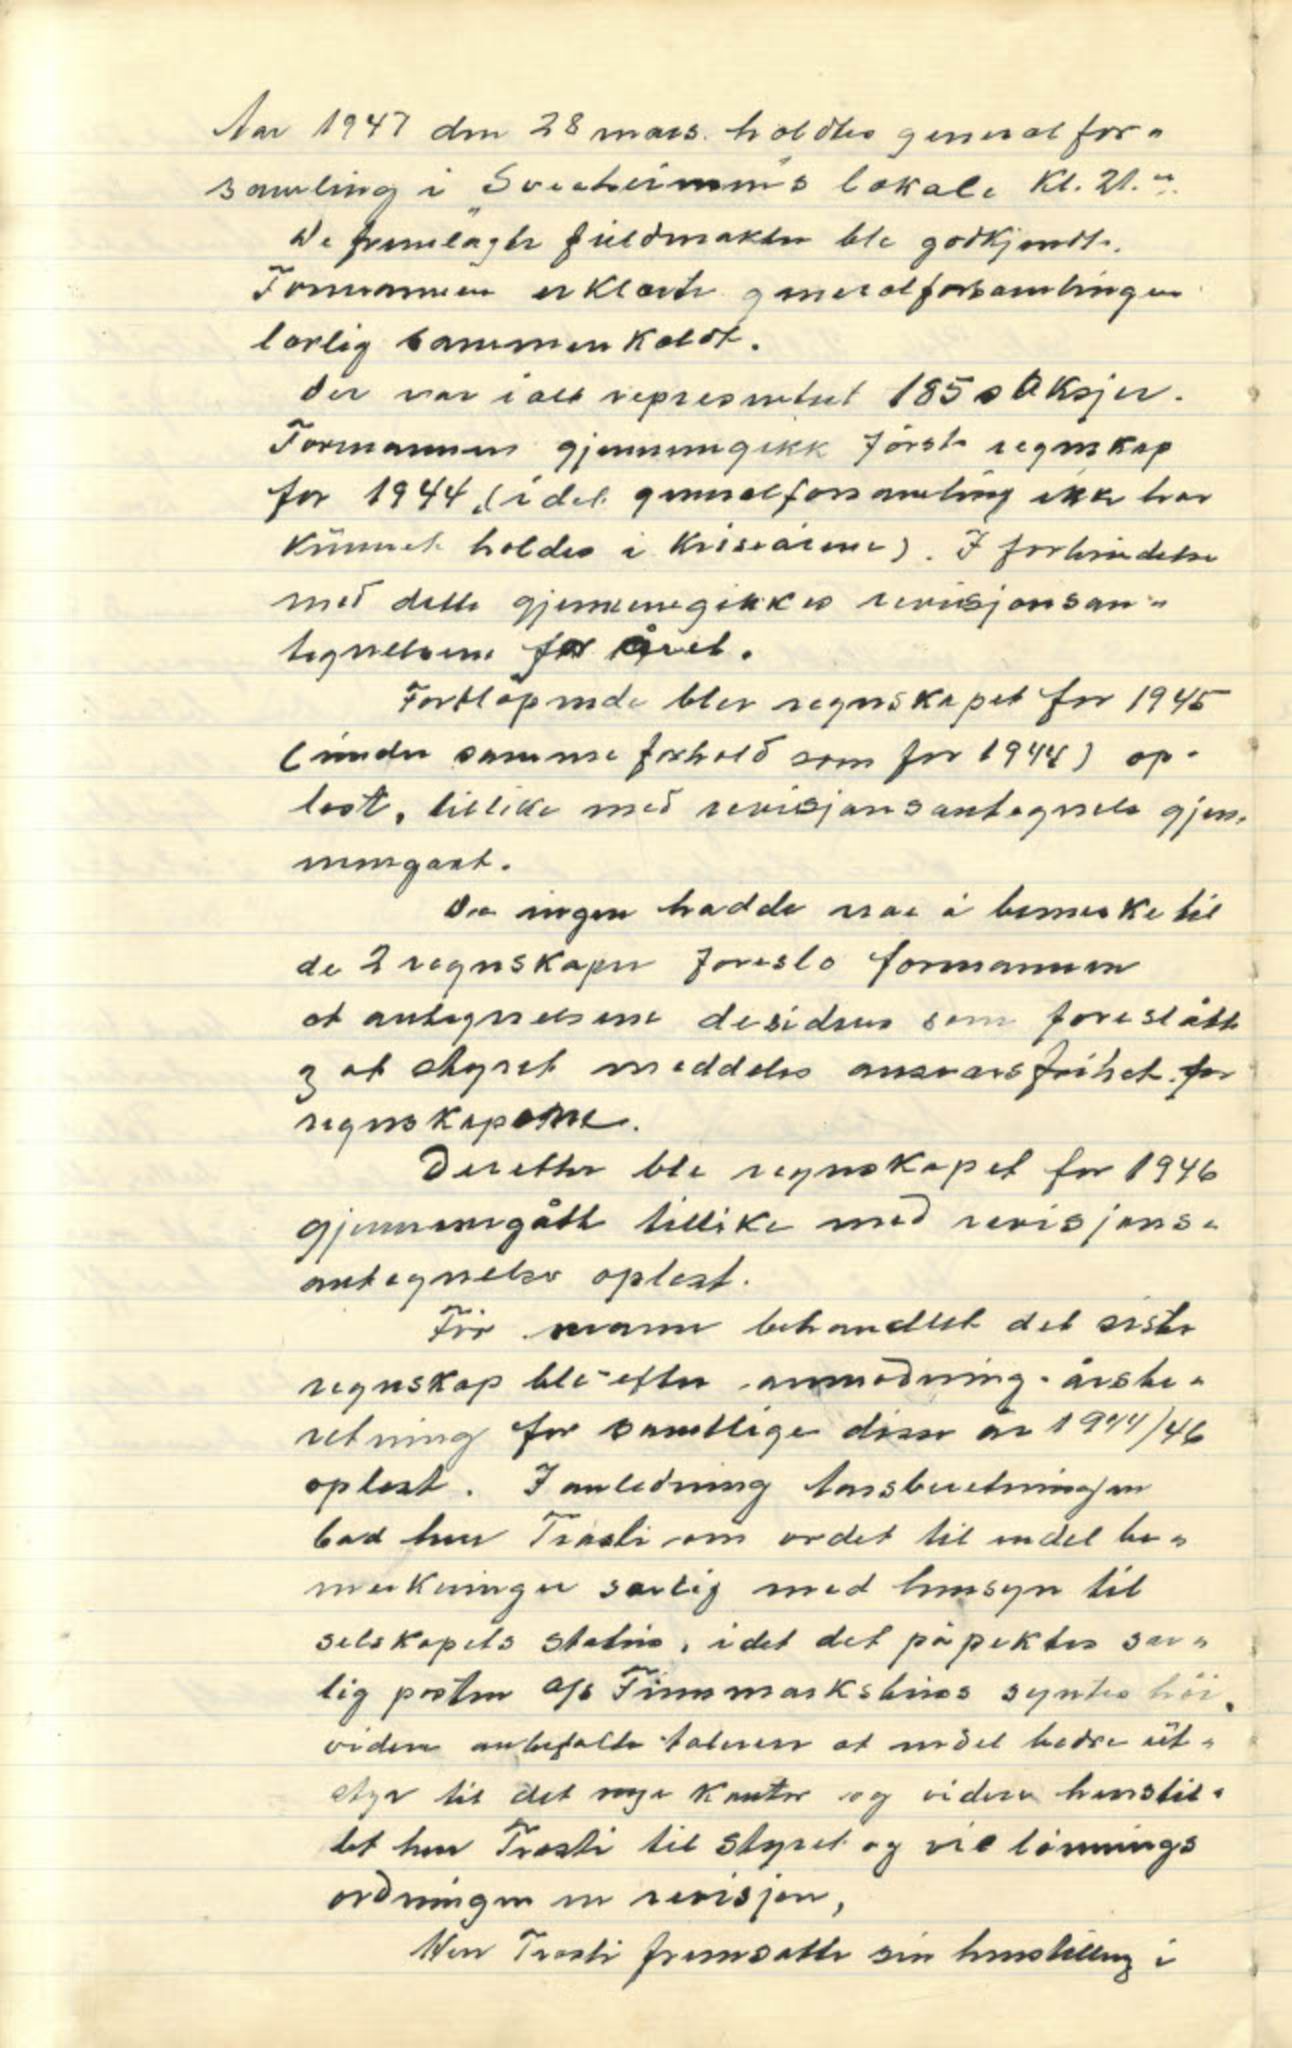 Aar 1947 den 28 mars. holdtes generalfor-
samling i "Sveaheimen"s lokale Kl. 21.
De fremlagte fuldmakter ble godkjendt.
Formannen erklærte generalforsamlingen
lovlig sammenkaldt.
Der var i alt representert 185 aksjer.
Formannen gjennemgikk först regnskap
for 1944, (idet generalforsamling ikke har
kunnet holdes i kriseårene). I forbindelse
med dette gjennemgikkes revisjonsan-
tegnelsene for året.
Fortlöpende blev regnskapet for 1945
(under samme forhold som for 1944) op-
lest, tillike med revisjonsantegnelse gjen-
nemgaat.
Da ingen hadde noe å bemerke til
de 2 regnskaper foreslo formannen
at antegnelsene desideres som foreslått
og at styret meddeles ansvarsfrihet for
regnskapene.
Deretter ble regnskapet for 1946
gjennemgått tillike med revisjons-
antegnelser oplest.
För mann behandlet det siste
regnskap ble efter anmodning årsbe-
retning for samtlige disse år 1944/46
oplest. I anledning Aarsberetningen
bad herr Trasti om ordet til endel be-
merkninger særlig med hensyn til
selskapets status, idet det påpektes sær-
lig posten A/S Finnmarkshus syntes höi.
videre anbefalte taleren at endel bedre ut-
styr til det nye kontor og videre henstil-
let herr Trasti til styret og vie lönnings
ordningen en revisjon,
Herr Trasti fremsatte sin henstilling i